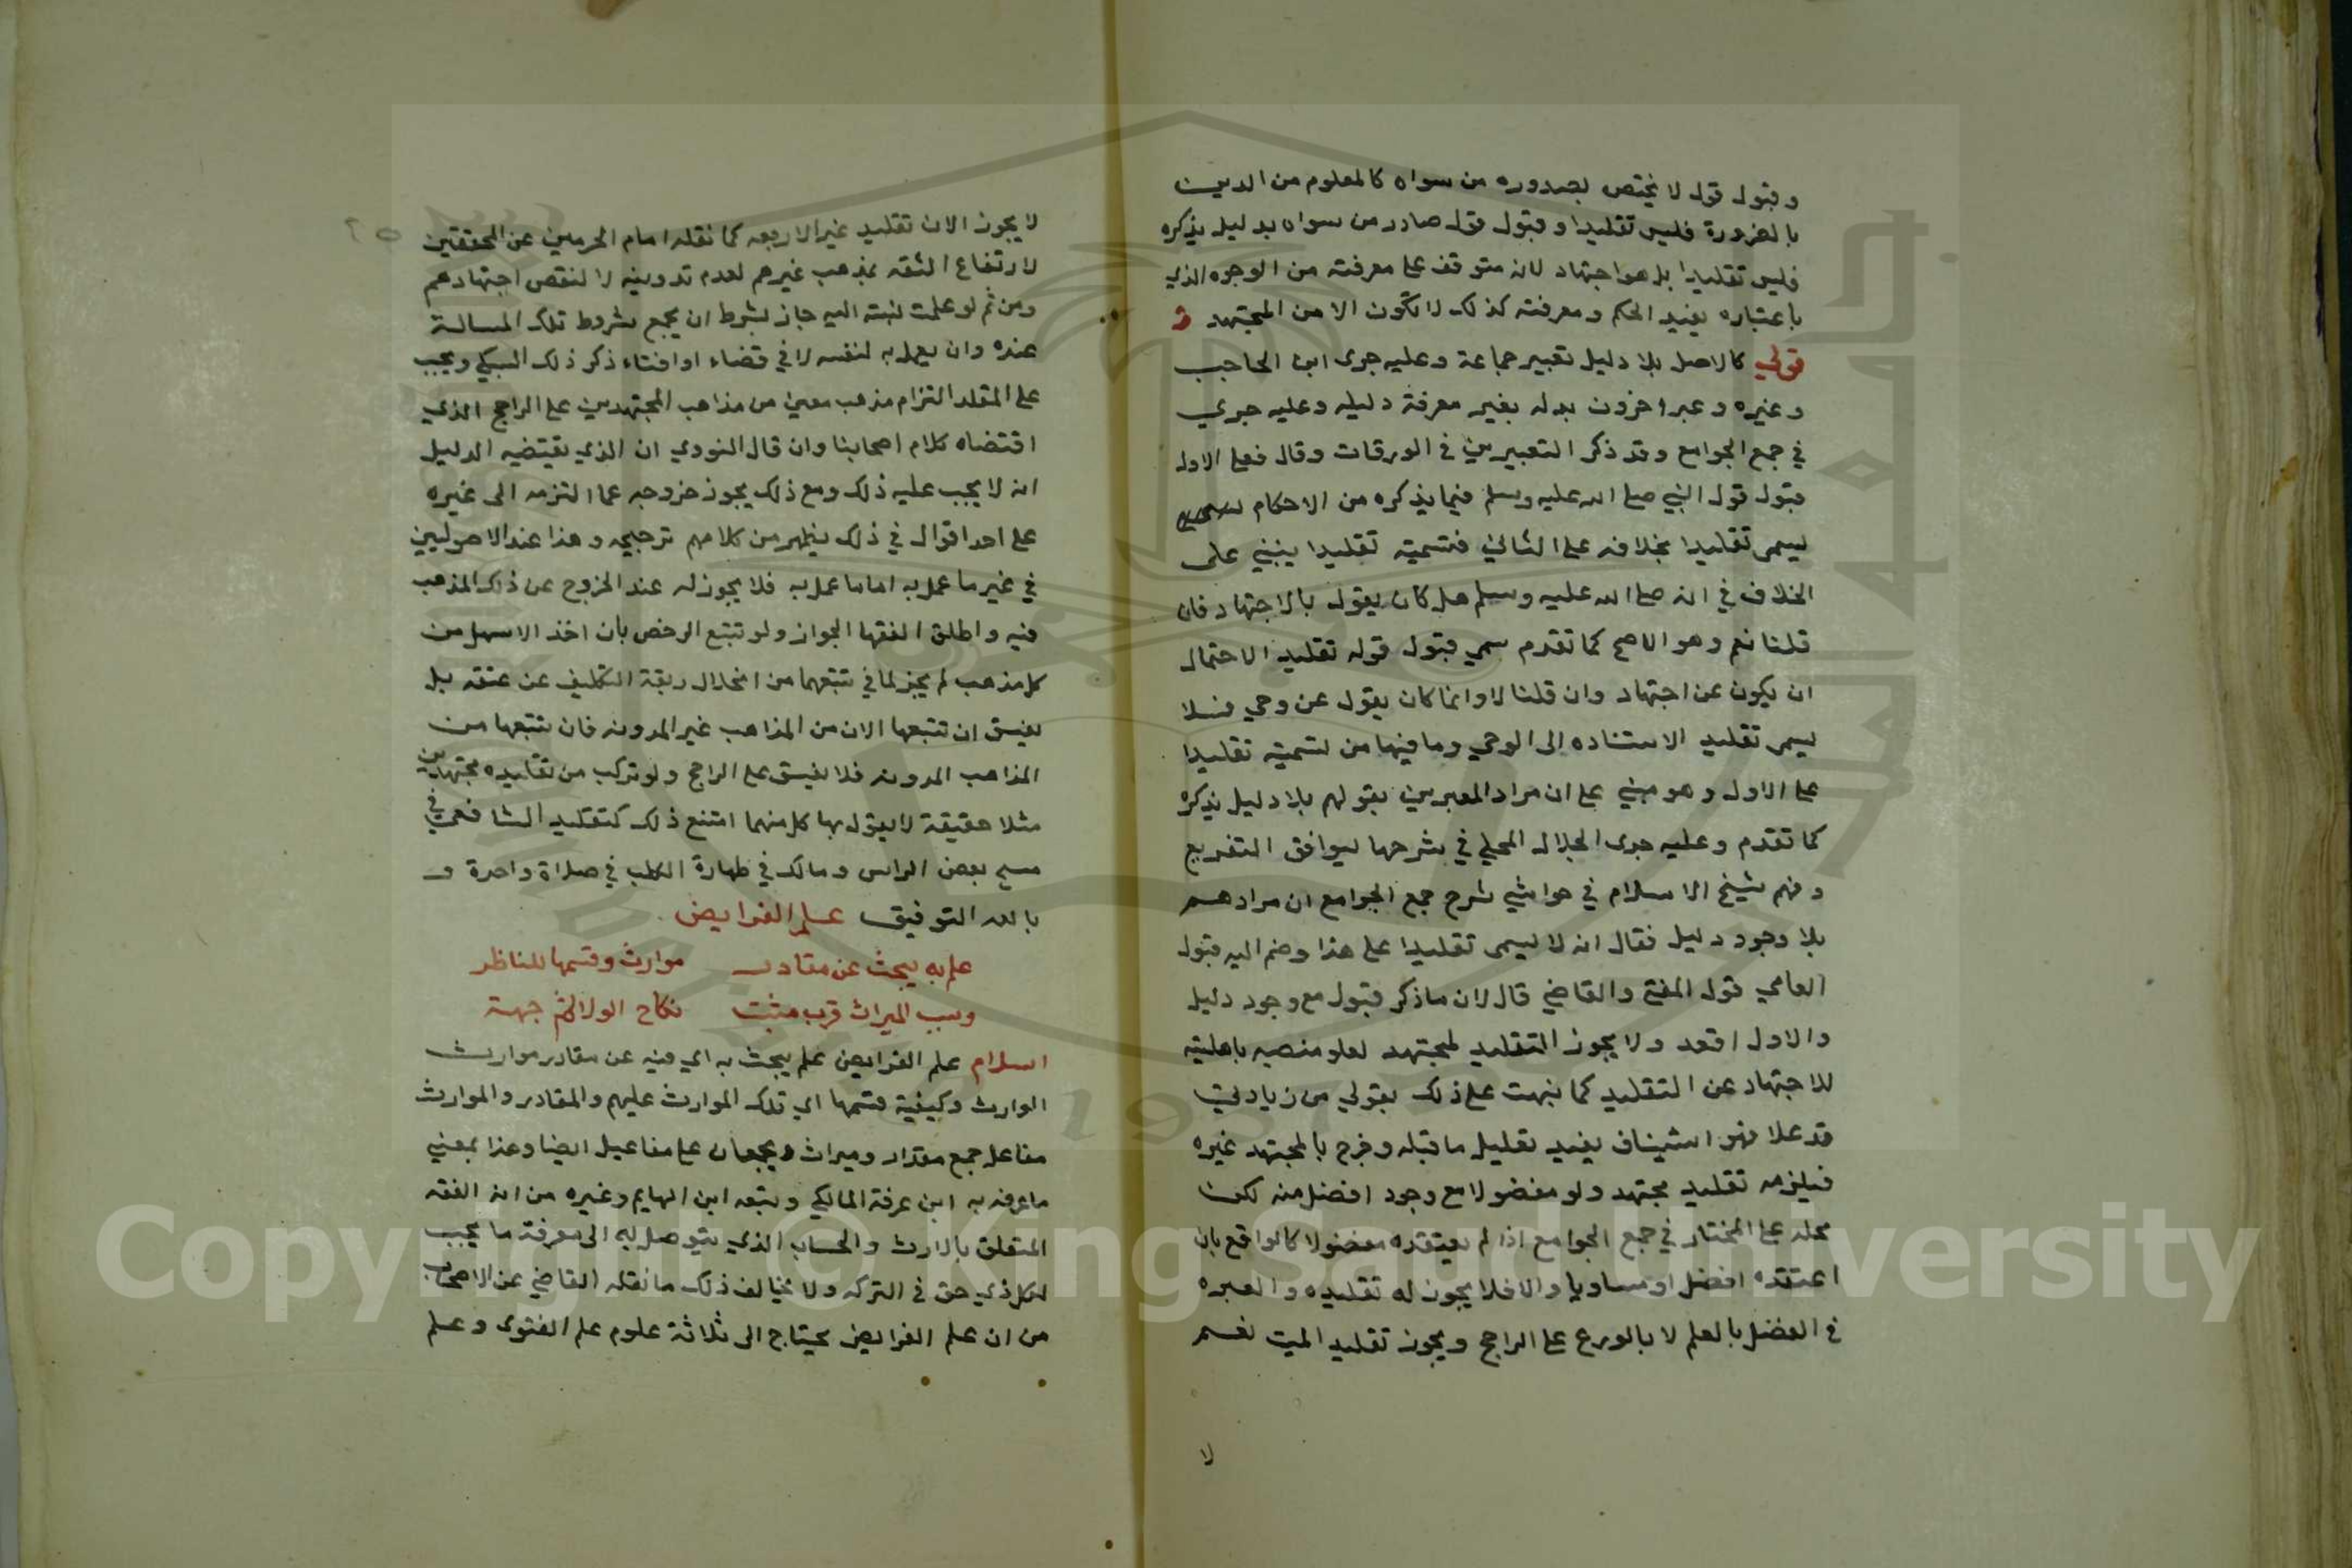 وقبول قول لا يختص بصدوره من سواه كالمعلوم من الدين
بالضرورة فليس تقليدا وقبول قول صادر من سواه بدليل يذكره
فليس تقليدا بل هو اجتهاد لانه متوقف على معرفته من الوجه الذي
باعتباره يفيد الحكم ومعرفته كذلك لا تكون الا من المجتهد و
قولي كالاصل بلا دليل تعبير جماعة وعليه جرى ابن الحاجب
وغيره وعبر اخرون بدله بغير معرفة دليله وعليه جري
في جمع الجوامع وقد ذكر التعبيرين في الورقات وقال فعلى الاول
قبول قول النبي صلى الله عليه وسلم فيما يذكره من الاحكام
يسمى تقليدا بخلافه على الثاني فتسميته تقليدا ينبني على
الخلاف في انه صلى الله عليه وسلم هل كان يقول بالاجتهاد فان
قلنا نعم وهو الاصح كما تقدم سمي قبول قوله تقليد الاحتمال
ان يكون عن اجتهاد وان قلنا لا وانما كان يقول عن وحي فلا
يسمى تقليد الاستناده الى الوحي وما فيها من تسميته تقليدا
على الاول وهو مبني على ان مراد المعبرين بقولهم بلا دليل يذكره
كما تقدم وعليه جرى الجلال المحلي في شرحها ليوافق التفريع
وفهم شيخ الاسلام في حواشي شرح جمع الجوامع ان مرادهم
بلا وجود دليل فقال انه لا يسمى تقليدا على هذا وضم اليه قبول
العامي قول المفتي والقاضي قال لان ما ذكر قبول مع وجود دليل
والاول اقعد ولا يجوز التقليد لمجتهد لعلو منصبه باهليته
للاجتهاد عن التقليد كما نبهت على ذلك بقولي من زيادتي
قد علا فهو استيناف يفيد تعليل ما قبله وخرج بالمجتهد غيره
فيلزمه تقليد مجتهد ولو مفضولا مع وجود افضل منه لكن
محله على المختار في جمع الجوامع اذا لم يعتقده مفضولا كالواقع بان
اعتقده افضل او مساويا والا فلا يجوز له تقليده والعبره
في الفضل بالعلم لا بالورع على الراجح ويجوز تقليد الميت نعم
لا
لا يجوز الان تقليد غير الاربعه كما نقله امام الحرمين عن المحققين
لارتفاع الثقه بمذهب غيرهم لعدم تدوينه لا لنقص اجتهادهم
ومن ثم لو علمت نسبته اليه جاز بشرط ان يجمع شروط تلك المسالة
عنده وان يعمل به لنفسه لا في قضاء او افتاء ذكر ذلك السبكي ويجب
على المقلد التزام مذهب معين من مذاهب المجتهدين على الراجح الذي
اقتضاه كلام اصحابنا وان قال النووي ان الذي يقتضيه الدليل
انه لا يجب عليه ذلك ومع ذلك يجوز خروجه عما التزمه الى غيره
على احد اقوال في ذلك يظهر من كلامهم ترجيحه وهذا عند الاصوليين
في غير ما عمل به اما ما عمل به فلا يجوز له عند الخروج عن ذلك المذهب
فيه واطلق الفقها الجواز ولو تتبع الرخص بان اخذ الاسهل من
كل مذهب لم يجز لما في تتبعهما من انحلال ربقة التكليف عن عنقه بل
يفسق ان تتبعها الان من المذاهب غير المدونه فان تتبعها من
المذاهب المدونه فلا يفسق على الراجح ولو تركب من تقليده مجتهدين
مثلا حقيقة لا يقول بها كل منهما امتنع ذلك كتقليد الشافعي في
مسح بعض الراس ومالك في طهارة الكلب في صلاة واحدة و
بالله التوفيق علم الفرايض
علم به يبحث عن مقادر موارث وقسمها للناظر
وسبب الميراث قرب مثبت نكاح الولا ثم جهة
اسلام علم الفرايض علم يبحث به اي فيه عن مقادر موارث
الوارث وكيفية قسمها اي تلك الموارث عليهم والمقادر والموارث
مفاعل جمع مقدار وميراث ويجمعان على مفاعيل ايضا وهذا بمعني
ما عرفه به ابن عرفة المالكي وتبعه ابن الهايم وغيره من انه الفقه
المتعلق بالارث والحساب الذي يتوصل به الى معرفة ما يجب
لكل ذي حق في التركه ولا يخالف ذلك ما نقله القاضي عن الاصحاب
من ان علم الفرايض يحتاج الى ثلاثة علوم علم الفتوى وعلم
Copyright © King Saud University